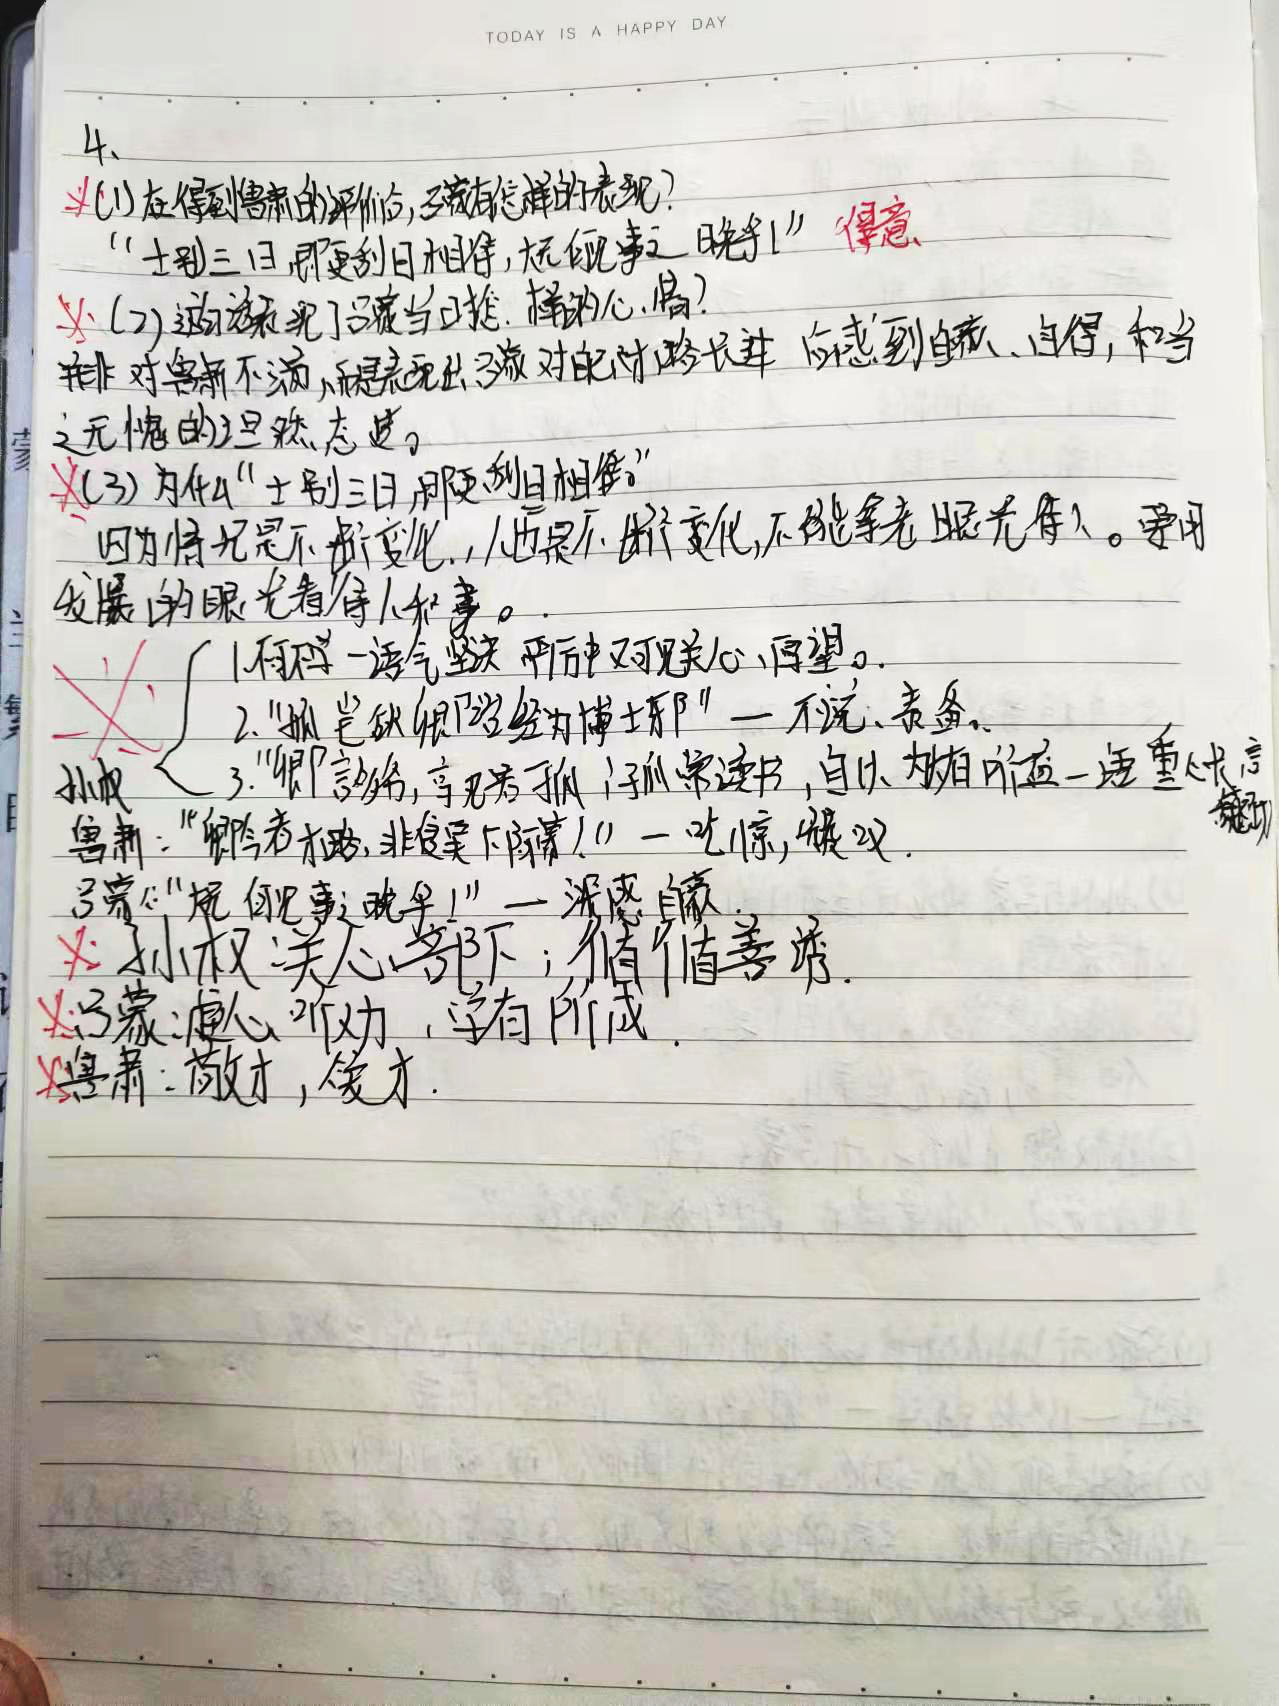 TODAY IS A HAPPY DAY
4、
(1)在得到鲁肃的评价后,吕蒙有怎样的表现?
“士别三日,即更刮目相待,大兄何见事之晚乎!” 得意、
(2)这句话表现了吕蒙当时怎样的心情?
并非对鲁肃不满,而是表现出吕蒙对自己才略长进而感到自豪、自得,和当
之无愧的坦然态度。
(3)为什么“士别三日,即更刮目相待。”
因为情况是不断变化,人也是不断变化,不能拿老眼光看人。要用
发展的眼光看待人和事。
1.不可不学—语气坚决 严厉中又可见关心、厚望。
2.“孤岂欲卿治经为博士邪”—不悦、责备、
孙权 3.“卿言多务,孰若孤,孤常读书,自以为大有所益—语重心长、言
辞恳切
鲁肃:“卿今者才略,非复吴下阿蒙!”—吃惊,赞叹.
吕蒙:“大兄何见事之晚乎!”—深感自豪
孙权:关心部下;循循善诱.
吕蒙:虚心听劝,学有所成.
鲁肃:敬才,爱才.